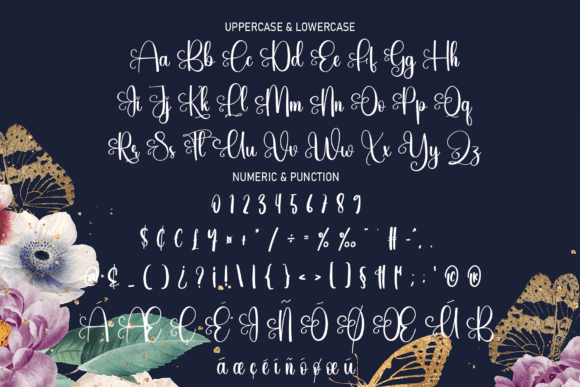 UPPERCASE & LOWERCASE
Aa Bb Cc Dd Ee Ff Gg Hh
Ii Jj Kk Ll Mm Nn Oo Pp Qq
Rr Ss Tt Uu Vv Ww Xx Yy Zz
NUMERIC & PUNCTION
0 1 2 3 4 5 6 7 8 9
$ ¢ £ ¥ ¤ + * / ÷ = % ‰ " # - , .
@ & _ ( ) ¿ ? ¡ ! \ | { } < > [ ] § ¶ ; : ' © ®
Á Æ Ç É Í Ñ Ó Ø Œ Ú ß
á æ ç é í ñ ó ø œ ú